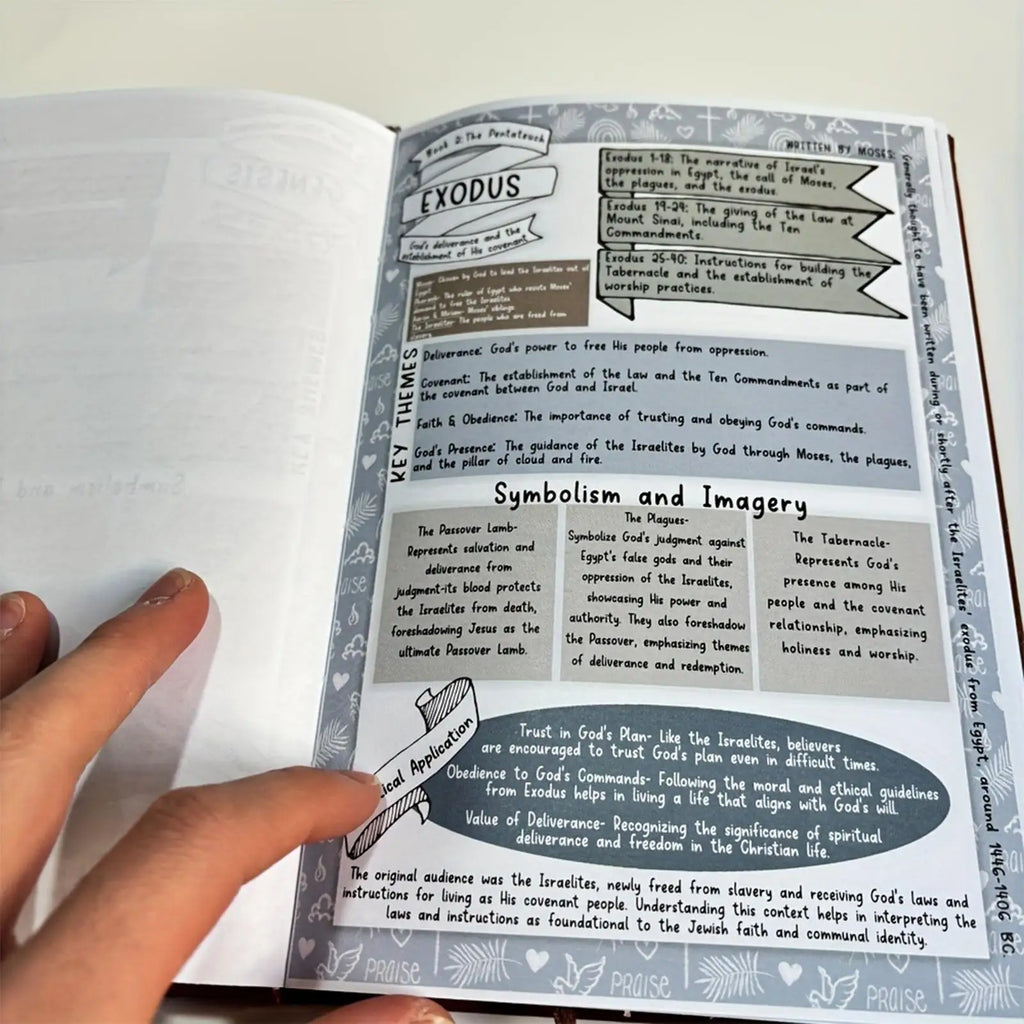 Book 2: The Pentateuch
EXODUS
God's deliverance and the
establishment of His covenant
WRITTEN BY MOSES:
Generally thought to have been written during or shortly after the Israelites' exodus from Egypt, around 1446-1406 BC.
Exodus 1-18: The narrative of Israel's
oppression in Egypt, the call of Moses,
the plagues, and the exodus.
Exodus 19-24: The giving of the Law at
Mount Sinai, including the Ten
Commandments.
Exodus 25-40: Instructions for building the
Tabernacle and the establishment of
worship practices.
Moses: Chosen by God to lead the Israelites out of
Egypt
Pharaoh: The ruler of Egypt who resists Moses'
demand to free the Israelites
Aaron & Miriam: Moses' siblings
The Israelites: The people who are freed from
slavery
KEY THEMES
Deliverance: God's power to free His people from oppression.
Covenant: The establishment of the Law and the Ten Commandments as part of
the covenant between God and Israel.
Faith & Obedience: The importance of trusting and obeying God's commands.
God's Presence: The guidance of the Israelites by God through Moses, the plagues,
and the pillar of cloud and fire.
Symbolism and Imagery
The Passover Lamb-
Represents salvation and
deliverance from
judgment-its blood protects
the Israelites from death,
foreshadowing Jesus as the
ultimate Passover Lamb.
The Plagues-
Symbolize God's judgment against
Egypt's false gods and their
oppression of the Israelites,
showcasing His power and
authority. They also foreshadow
the Passover, emphasizing themes
of deliverance and redemption.
The Tabernacle-
Represents God's
presence among His
people and the covenant
relationship, emphasizing
holiness and worship.
ical Application
Trust in God's Plan- Like the Israelites, believers
are encouraged to trust God's plan even in difficult times.
Obedience to God's Commands- Following the moral and ethical guidelines
from Exodus helps in living a life that aligns with God's will.
Value of Deliverance- Recognizing the significance of spiritual
deliverance and freedom in the Christian life.
The original audience was the Israelites, newly freed from slavery and receiving God's laws and
instructions for living as His covenant people. Understanding this context helps in interpreting the
laws and instructions as foundational to the Jewish faith and communal identity.
PRAISE
PRAISE